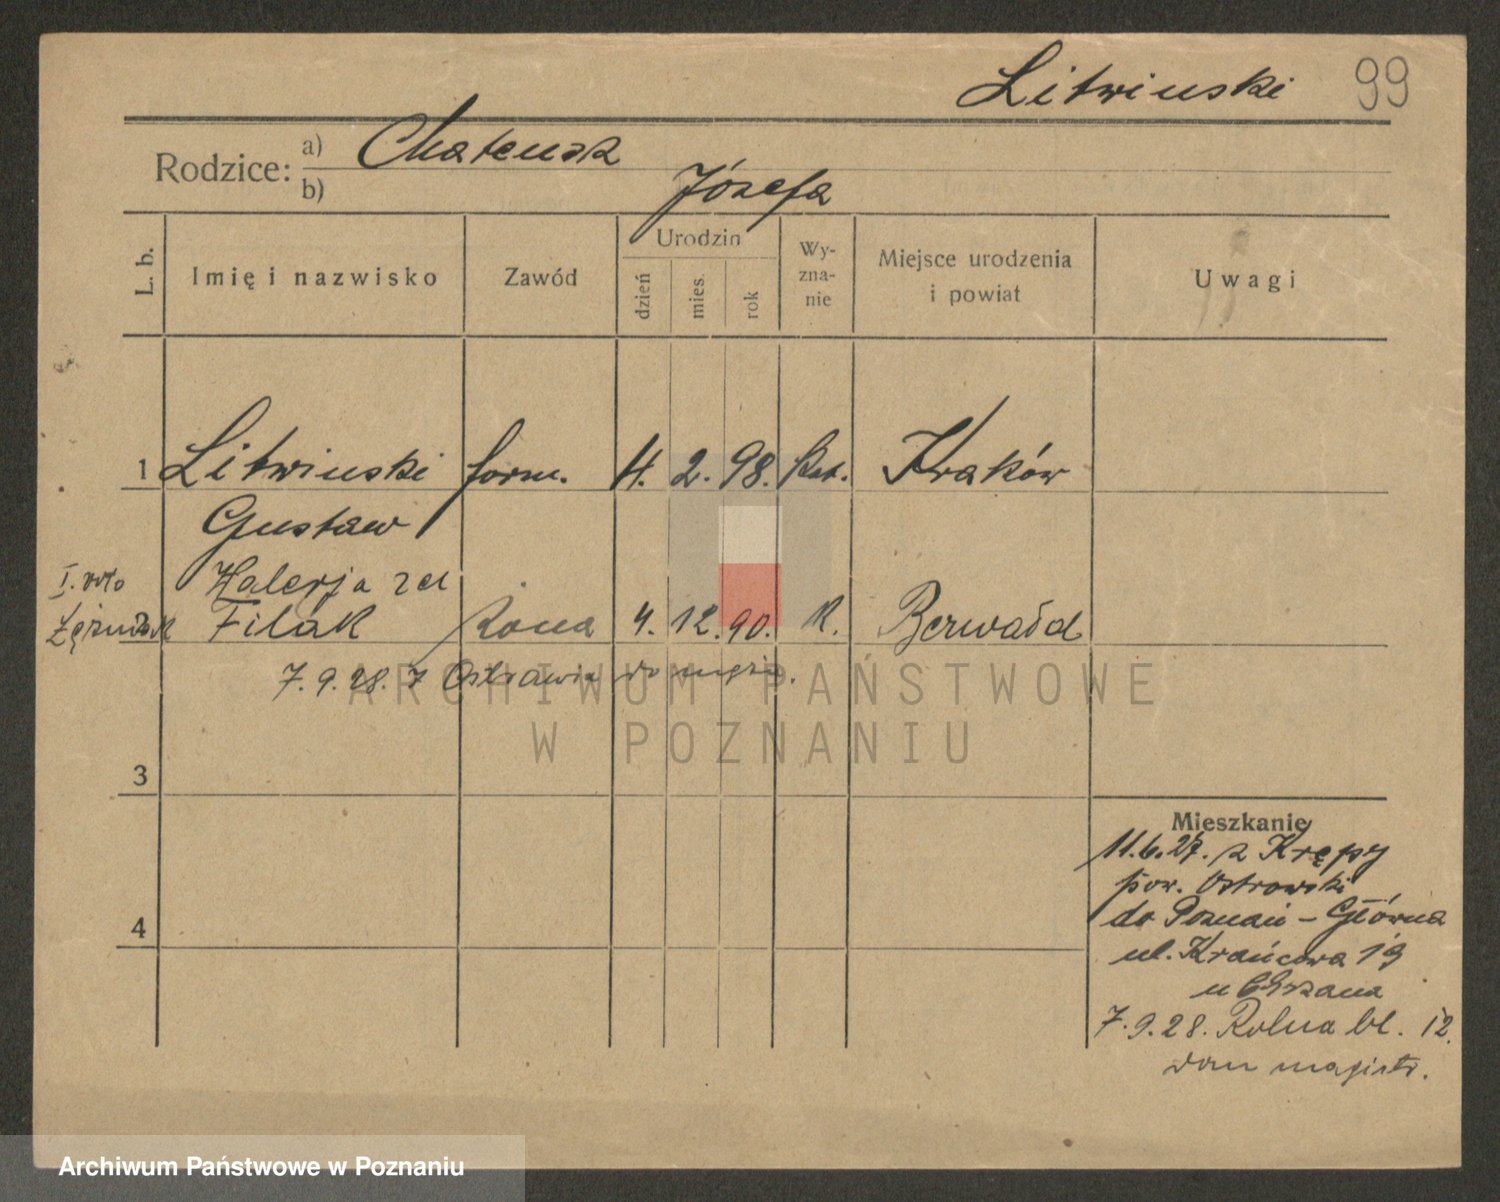 Litwinski 99
Rodzice: a)
b) Józefa
L. b. Imię i nazwisko Zawód Urodzin dzień mies. rok Wy-zna-nie Miejsce urodzenia i powiat Uwagi
1 Litwinski form. 4. 2. 98. Kat. Kraków
Gustaw
I. voto Walerja zd
2 Filák żona 4. 12. 90. K. Berwałd
7.9.28. z Ostrowia do męża.
ARCHIWUM PAŃSTWOWE
W POZNANIU
3
Mieszkanie
11.6.27. z Krępy
pow. Ostrowski
do Poznań - Główna
4
ul. Krańcowa 19
u
7.9.28. Rolna bl. 12.
dom magistr.
Archiwum Państwowe w Poznaniu